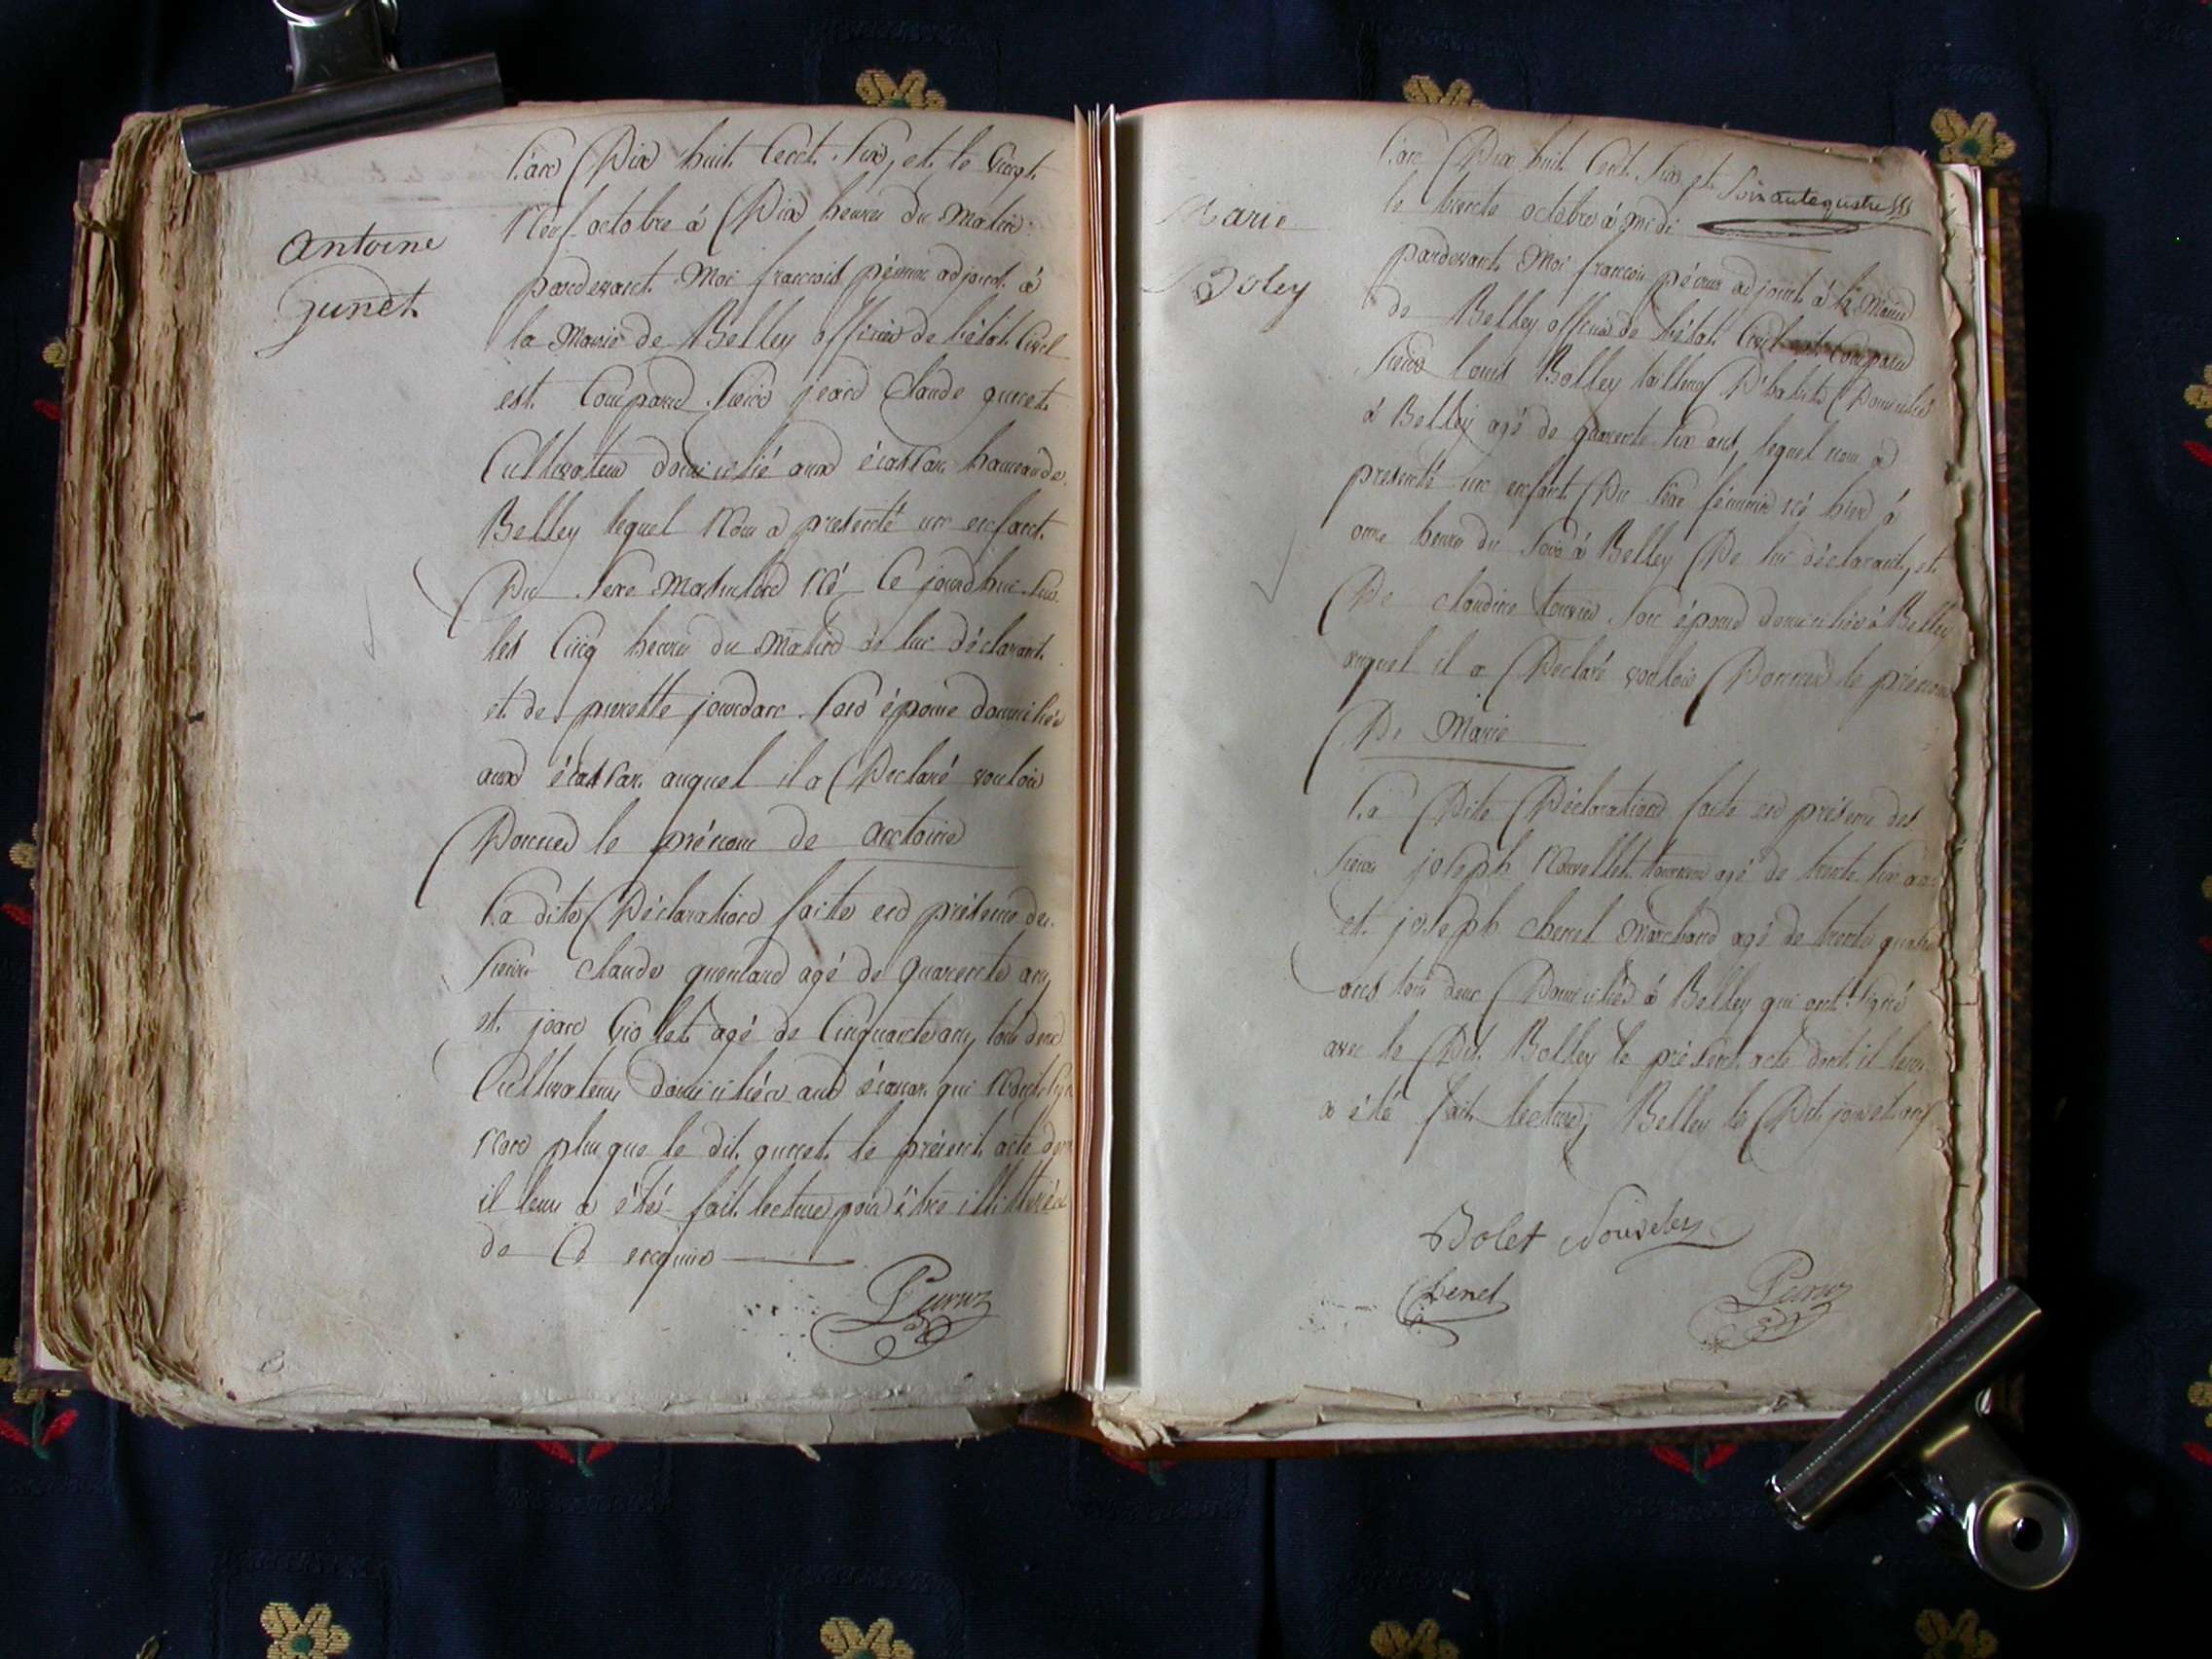 L'an Dix huit Cent Six, et le Vingt
Neuf octobre à Dix heures du Matin
Antoine
gunet
pardevant Moi francois adjoint à
la Mairie de Belley officier de l'état Civil
est Comparu Sieur jean Claude gunet
Cultivateur domicilié aux hameau de
Belley lequel Nous a presenté un enfant
Du Sexe Masculin Né Ce jourdhui Sur
les Cinq heures du Matin de lui déclarant
et de pierrette jourdan Son épouse domiciliés
aux auquel il a Declaré vouloir
Donner le prénom de antoine
La dite Déclaration faite en présence des
Sieurs Claude agé de quarente ans
et jean Violet agé de Cinquante ans tous deux
Cultivateurs domiciliés aux qui N'ont Signé
Non plus que le dit gunet le présent acte dont
il leur a été fait lecture pour être illitterés
de Ce enquis
L'an Dix huit Cent Six et Soixantequatre
le trente octobre à Midi
Marie
Boley
pardevant Moi francois adjoint à la Mairie
de Belley officier de l'état Civil est Comparu
Sieur Louis Bolley tailleur D'habits Domicilié
à Belley agé de quarente Six ans, lequel nous a
presenté un enfant Du Sexe féminin né hier à
onze heures du Soir à Belley De lui déclarant, et
De claudine Son épouse domiciliés à Belley
auquel il a Declaré vouloir Donner le prénom
De Marie
La Dite Déclaration faite en présence des
Sieurs joseph Nouvellet agé de trente Six ans
et joseph Chenel Marchand agé de trente quatre
ans tous deux Domiciliés à Belley qui ont Signé
avec le Dit Bolley le présent acte dont il leur
a été fait lecture, Belley les Dit jour et an
Bolet
Chenel